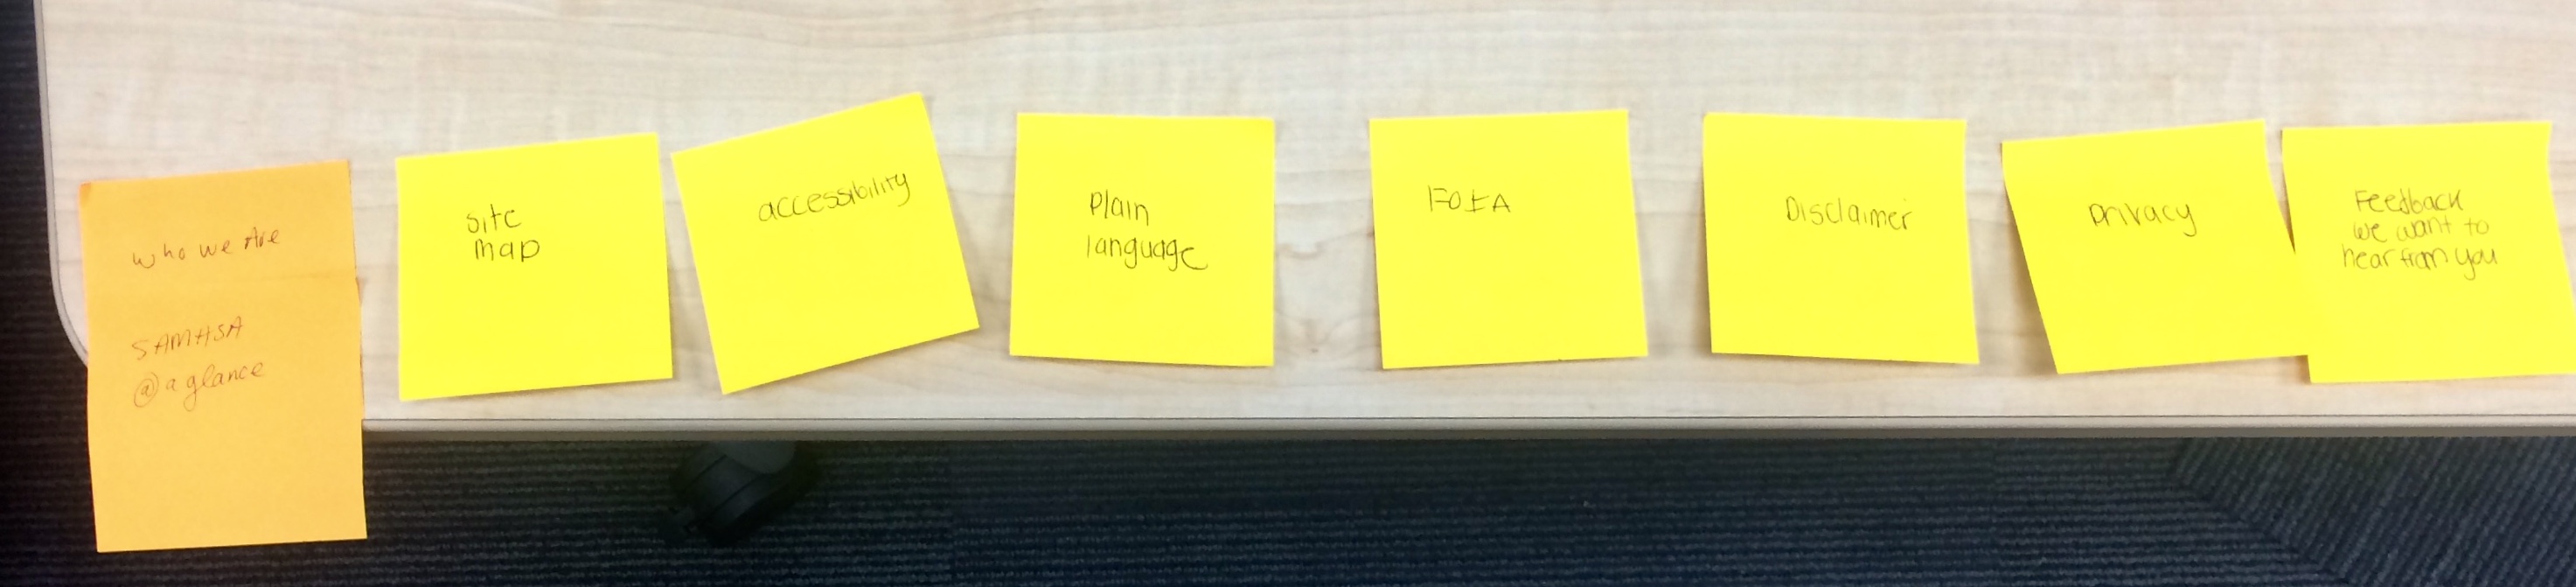 who we Are
SAMHSA
@ a glance
site
map
accessibility
Plain
language
FOIA
Disclaimer
privacy
Feedback
we want to
hear from you